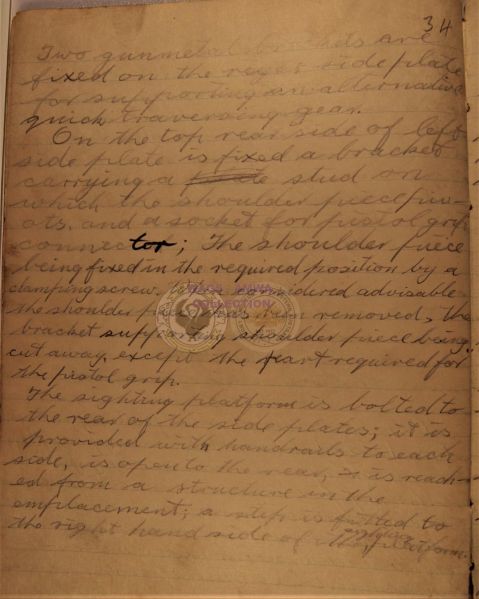 34
Two gunmetal brackets are
fixed on the side plate
for supporting an alternative
quick traversing gear.
On the top rear side of left
side plate is fixed a bracket
carrying a stud on
which the shoulder piece piv-
ots, and a socket for pistol grip
connector; The shoulder piece
being fixed in the required position by a
clamping screw. considered advisable
the shoulder removed, the
bracket supporting shoulder piece being
cut away except the part required for
the pistol grip.
The sighting platform is bolted to
the rear of the side plates; it is
provided with handrails to each
side, is open to the rear, & is reach-
ed from a structure in the
emplacement; a step is fitted to
the right hand side of platform.
COLLECTION